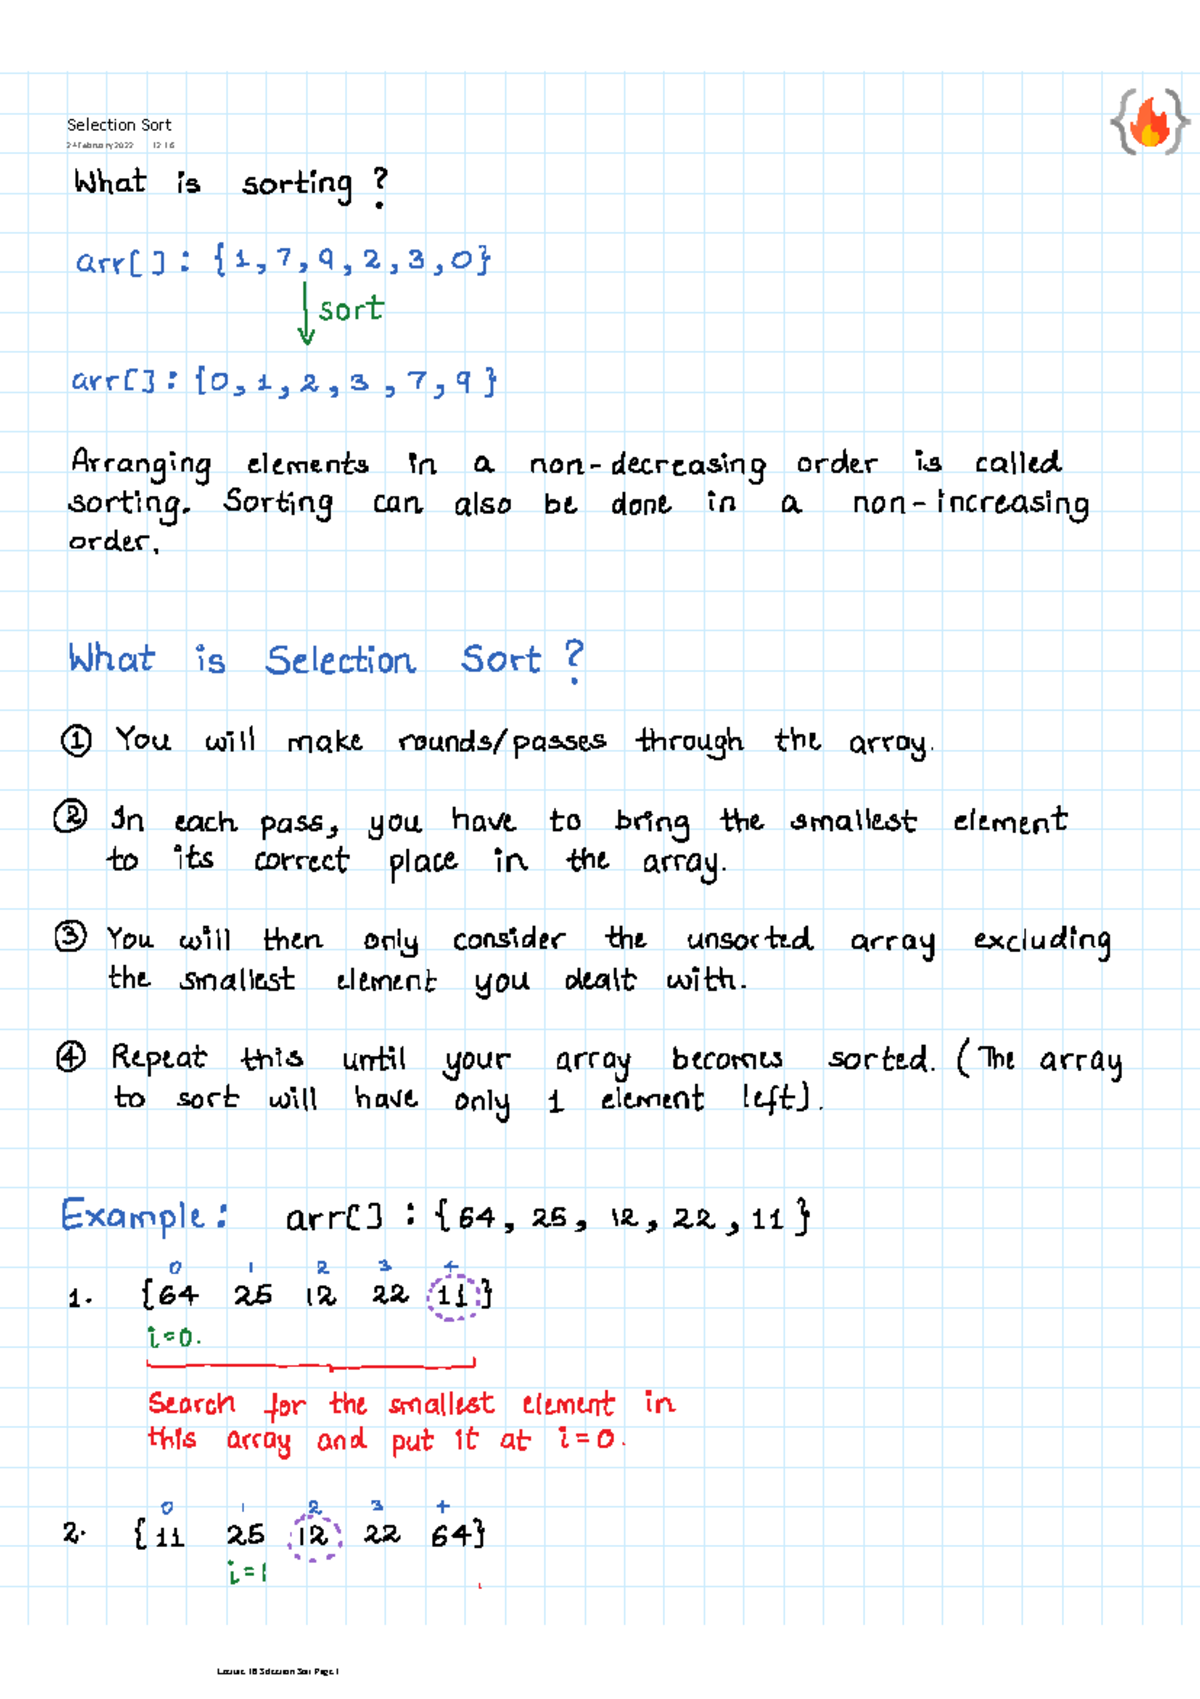 Selection Sort
24 February 2022 12:16
What is sorting ?
arr[] : {1, 7, 9, 2, 3, 0}
sort
arr[] : {0, 1, 2, 3, 7, 9}
Arranging elements in a non-decreasing order is called
sorting. Sorting can also be done in a non-increasing
order.
What is Selection Sort ?
① You will make rounds/passes through the array.
② In each pass, you have to bring the smallest element
to its correct place in the array.
③ You will then only consider the unsorted array excluding
the smallest element you dealt with.
④ Repeat this until your array becomes sorted. (The array
to sort will have only 1 element left).
Example: arr[] : {64, 25, 12, 22, 11}
0 1 2 3 4
1. {64 25 12 22 11}
i=0.
Search for the smallest element in
this array and put it at i=0.
0 1 2 3 4
2. {11 25 12 22 64}
i=1
Lecture 18 Selection Sort Page 1